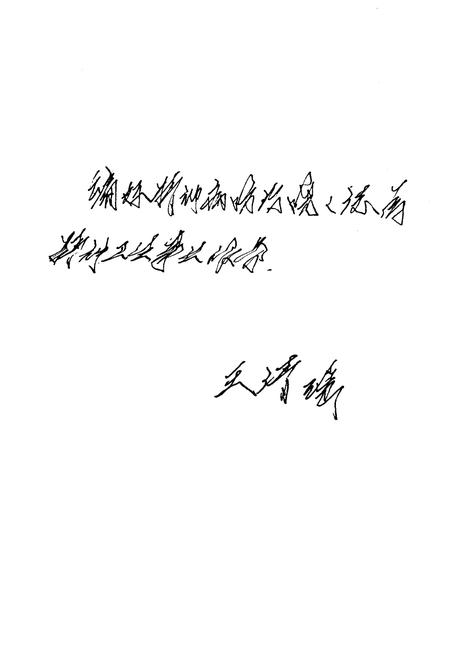 编好精神病防治院院志为
精神卫生事业服务.
王清瑞